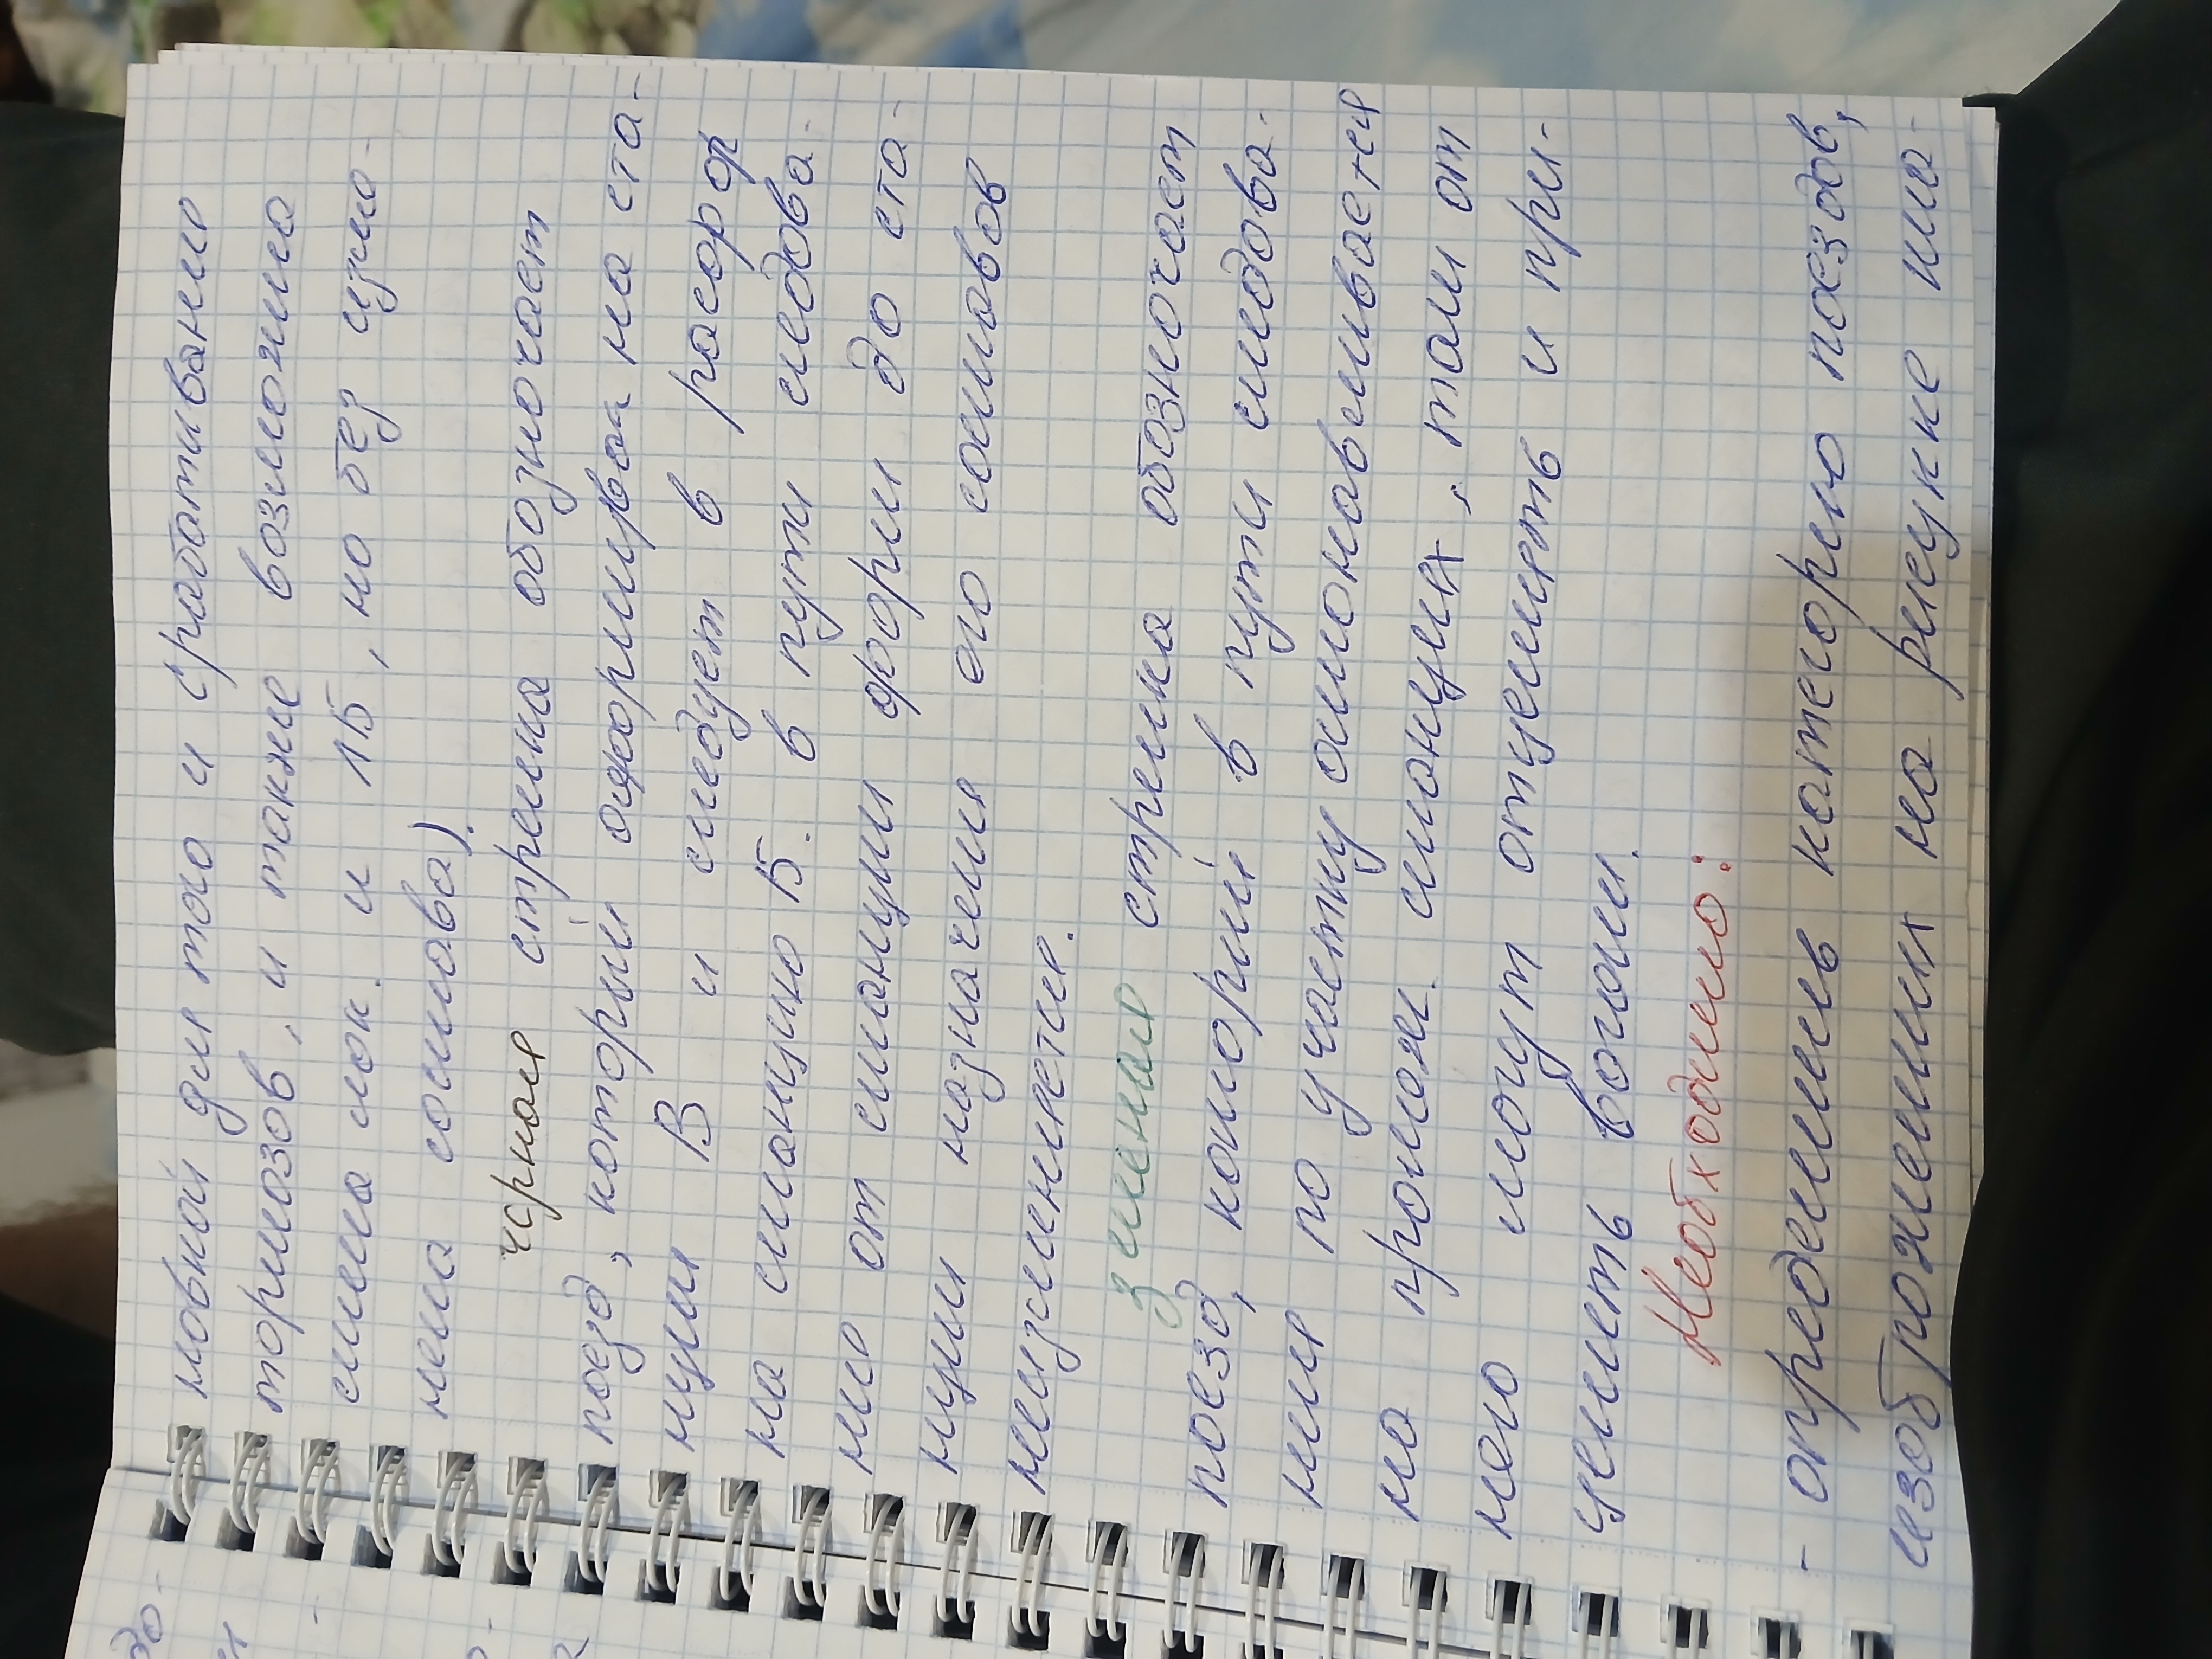 ловной для того и срабатыванию
тормозов, и также возможна
смена лок. и ЛБ, но без изме-
нена состава).
чёрная стрелка обозначает
поезд, который оформирован на ста-
нции В и следует в расформ
на станцию Б. в пути следова-
ния от станции форм до ста-
нции назначения его составов
неизменяется.
зеленая стрелка обозначает
поезд, который в пути следова-
ния по участку останавливается
на промеж. станциях, там от
него могут отцеплять и при-
цеплять вагоны.
Необходимо:
- определить категорию поездов,
изображенных на рисунке ни-
до-